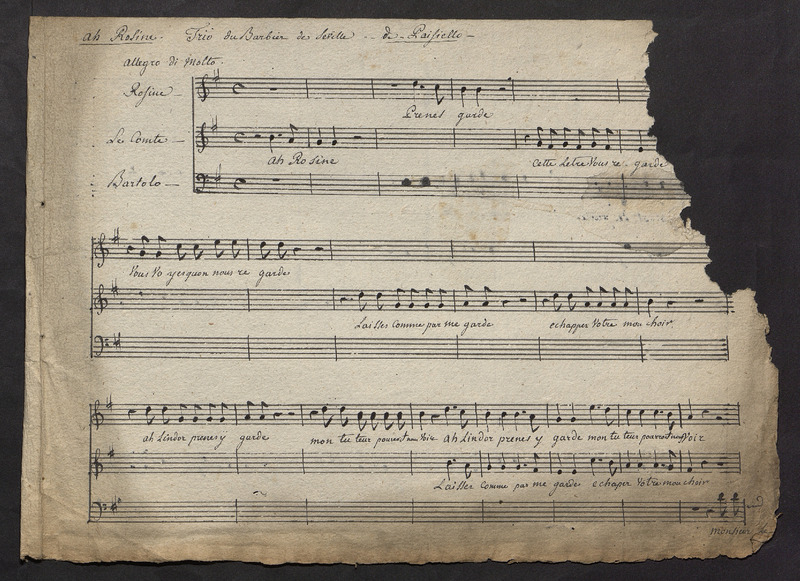 ah Rosine. Trio du Barbier de Seville - de Paisiello -
allegro di molto.
Rosine
Prenes garde
Le Comte
ah Rosine cette letre Vous re garde
Bartolo
Vous Vo yes quon nous re garde
Laisses Comme par me garde echapper Votre mou choir.
ah Lindor prenes y garde mon tu teur pouroit nous Voir ah Lindor prenes y garde mon tu teur pouroit nous Voir
Laisses comme par me garde echaper Votre mou choir
monsieur